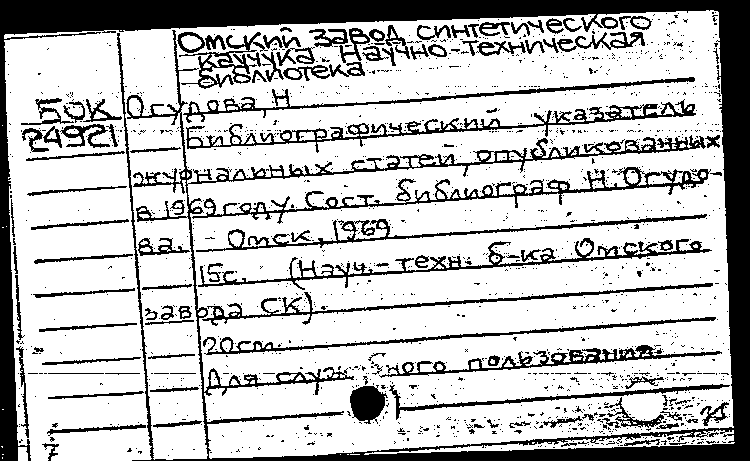 Омский завод синтетического
каучука. Научно-техническая
библиотека
БОК Осудова, Н
24921 Библиографический указатель
журнальных статей, опубликованных
в 1969 году. Сост. библиограф Н. Осудо-
ва. - Омск, 1969
15с. (Науч.-техн. б-ка Омского
завода СК).
20см.
Для служебного пользования.